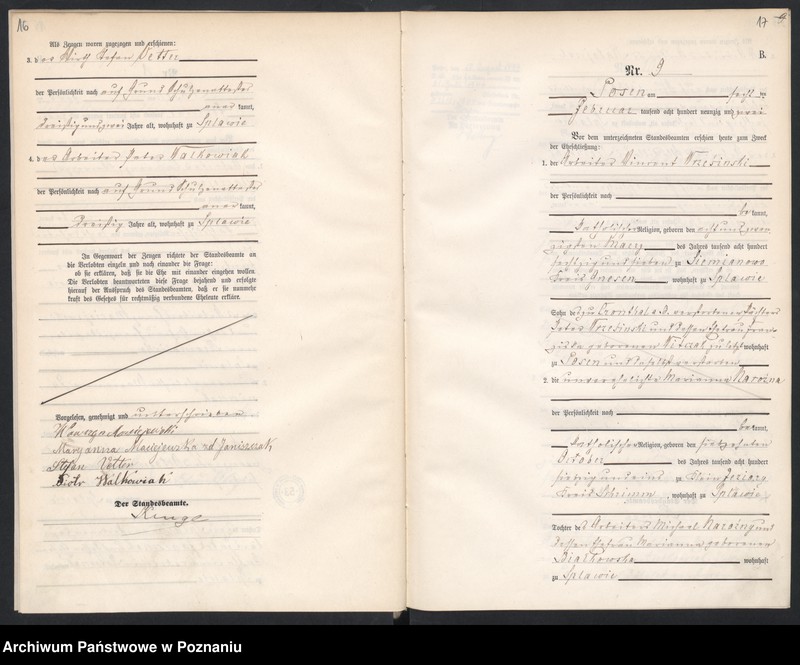 16
Als Zeugen waren zugezogen und erschienen:
3. der Wirth Stefan Vetter
der Persönlichkeit nach auf Grund
kannt,
dreißigundzwei Jahre alt, wohnhaft zu Splawie
4. der Arbeiter Peter Walkowiak
der Persönlichkeit nach auf Grund
kannt,
dreißig Jahre alt, wohnhaft zu Splawie
In Gegenwart der Zeugen richtete der Standesbeamte an
die Verlobten einzeln und nach einander die Frage:
ob sie erklären, daß sie die Ehe mit einander eingehen wollen.
Die Verlobten beantworteten diese Frage bejahend und erfolgte
hierauf der Ausspruch des Standesbeamten, daß er sie nunmehr
kraft des Gesetzes für rechtmäßig verbundene Eheleute erkläre.
Vorgelesen, genehmigt und unterschrieben
Maciejewski
Maryanna Maciejewska zd Janiszczak
Stefan Vetter
Piotr Walkowiak
Der Standesbeamte.
17
B.
Nr. 9
Posen am sechs ten
Februar tausend acht hundert neunzig und zwei
Vor dem unterzeichneten Standesbeamten erschien heute zum Zweck
der Eheschließung:
1. der Arbeiter Vincent Wrzesinski
der Persönlichkeit nach
be kannt,
katholischer Religion, geboren den achtundzwan
zigsten März des Jahres tausend acht hundert
sechszig und sieben zu Siemianowo
Kreis Gnesen, wohnhaft zu Splawie
Sohn des zu verstorbenen
Peter Wrzesinski und dessen Ehefrau Fran
ziska geborenen zuletzt wohnhaft
zu Posen und daselbst verstorben
2. die unverehelichte Marianna Narozna
der Persönlichkeit nach
be kannt,
katholischer Religion, geboren den siebzehnten
Oktober des Jahres tausend acht hundert
siebzig und eins zu Klein Jeziory
Kreis Schrimm, wohnhaft zu Splawie
Tochter des Arbeiters Michael Narozny und
dessen Ehefrau Marianna geborenen
Bialkowska wohnhaft
zu Splawie
Archiwum Państwowe w Poznaniu